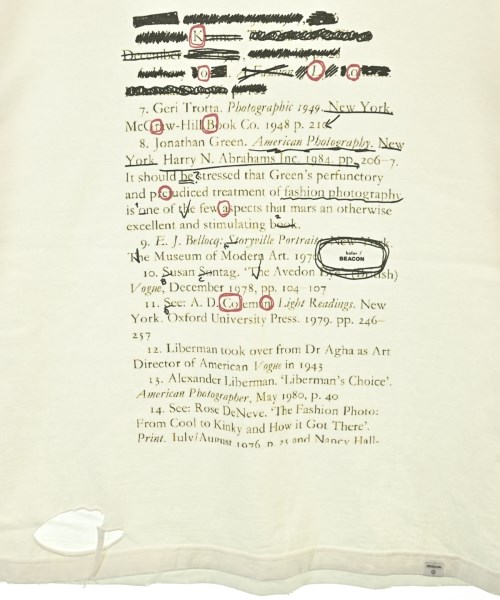 K
December
7. Geri Trotta. Photographic 1949. New York,
McGraw-Hill Book Co. 1948 p. 210
8. Jonathan Green. American Photography. New
York. Harry N. Abrahams Inc. 1984. pp. 206–7.
It should be stressed that Green's perfunctory
and prejudiced treatment of fashion photography
is one of the few aspects that mars an otherwise
excellent and stimulating book.
9. E. J. Bellocq: Storyville Portraits. New York.
The Museum of Modern Art.
BEACON
10. Susan Sontag. 'The Avedon
Vogue, December 1978, pp. 104–107
11. See: A. D. Coleman. Light Readings. New
York. Oxford University Press. 1979. pp. 246–
257
12. Liberman took over from Dr Agha as Art
Director of American Vogue in 1943
13. Alexander Liberman. 'Liberman's Choice'.
American Photographer, May 1980, p. 40
14. See: Rose DeNeve. 'The Fashion Photo:
From Cool to Kinky and How it Got There'.
Print. July/August 1976 p. 25 and Nancy Hall-